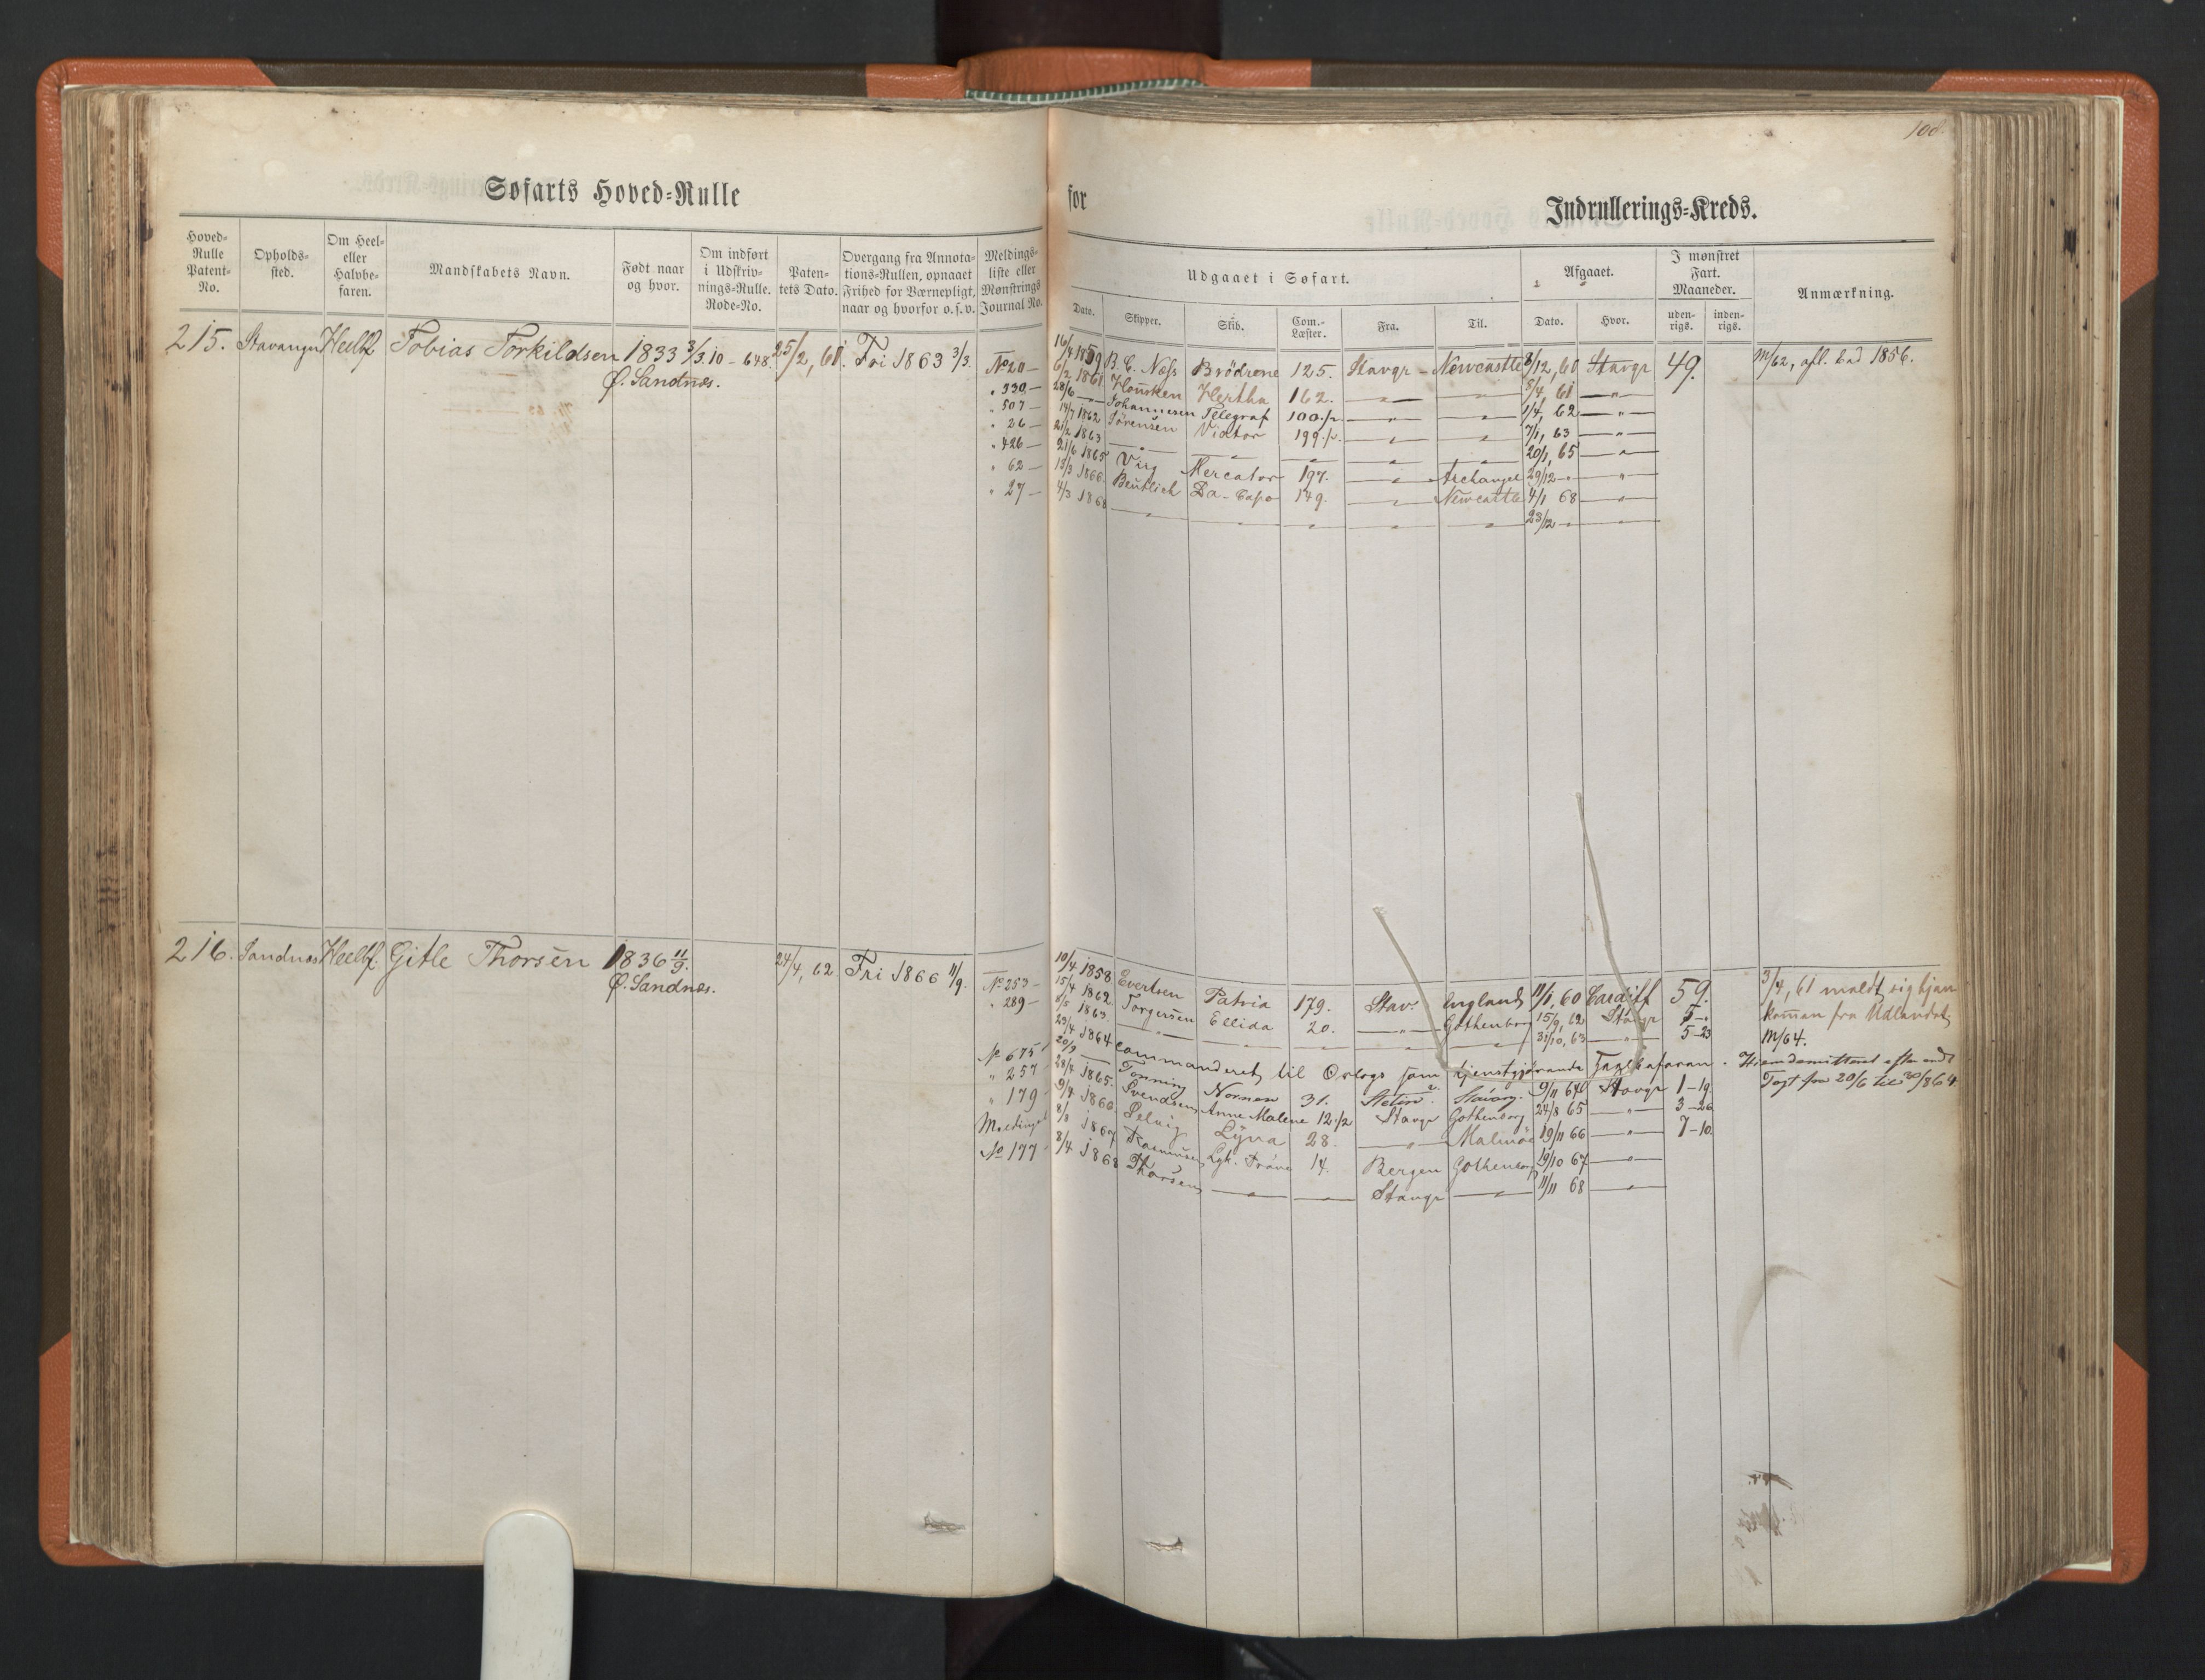 108.
Søfarts Hoved-Rulle for Indrullerings-Kreds.
Hoved-Rulle Patent-No.
Opholds-sted.
Om Heel- eller Halvbe-faren.
Mandskabets Navn.
Født naar og hvor.
Om indført i Udskriv-nings-Rulle. Rode-No.
Paten-tets Dato.
Overgang fra Annota-tions-Rullen, opnaaet Frihed for Værnepligt, naar og hvorfor o. s. v.
Meldings-liste eller Mønstrings Journal No.
Udgaaet i Søfart.
Dato. Skipper. Skib. Com.-Læster. Fra. Til.
Afgaaet.
Dato. Hvor.
I mønstret Fart. Maaneder.
uden-rigs. inden-rigs.
Anmærkning.
215. Stavanger Heelbf. Tobias Torkildsen 1833 3/3. 10 - 648. 25/2, 61. Fri 1863 3/3.
Ø. Sandnæs.
No 20 — 16/4 1859 B. C. Næss Brödrene 125. Stavgr — Newcastle 8/12, 60 Stavgr 49. M/62, afl. Ead 1856.
" 330 — 6/2 1861 Hertha 162. — " — — " — 8/4, 61 — " —
" 507 — 28/6 — Johannesen Telegraf 100 1/2 — " — — " — 1/4, 62 — " —
" 26 — 14/7 1862 Sörensen Viator 199 1/2 — " — — " — 7/1, 63 — " —
" 426 — 21/2 1863 — " — — " — — " — — " — — " — 20/1, 65 — " —
" 62 — 21/6 1865 Virg Mercator 197. — " — Archangel 29/12 — " "
" 27 — 13/3 1866 Beutlich Da-Capo 149. — " — Newcastle 4/1 68 — " —
4/3 1868 — " — — " — — " — — " — — " — 23/12 — " — " —
216. Sandnæs Heelbf. Gitle Thorsen 1836 11/9. 24/4, 62. Fri 1866 11/9.
Ø. Sandnæs.
No 253 — 10/4 1858 Evertsen Patria 179. Stav. England 11/1, 60 Cardiff 59. 3/4, 61 meldt sig hjem
" 289 — 15/4 1862. Torgersen Ellida 20. — " — Gothenborg 15/9, 62 Stavgr 5 - " kommen fra Udlandet
8/5 1863. — " — — " — — " — — " — — " — 31/10, 63 — " — 5 - 23 M/64.
23/4 1864 commanderet til Orlogs som tjenstgjørende Heelbefaren. Hjemdemitteret efter endt
No 675 20/9 — Tonning Nornen 31. Stetin Stavang. 9/11 64 Stavgr 1 - 19. Togt fra 20/6 til 30/8 64
" 257 28/4 1865. Svendsen Anne Malene 12 1/2 Stavgr Gothenborg 24/8 65 — " — 3 - 26
" 179 9/4 1866 Selvig Lyna 28. — " — Malmöe 19/11 66 — " — 7 - 10.
Meldingsl. 8/8 1867 Rasmussen 14. Bergen Gothenborg 19/10 67 — " —
No 177 8/4 1868 Thorsen — " — — " — Stavgr — " — 11/11 68 — " —